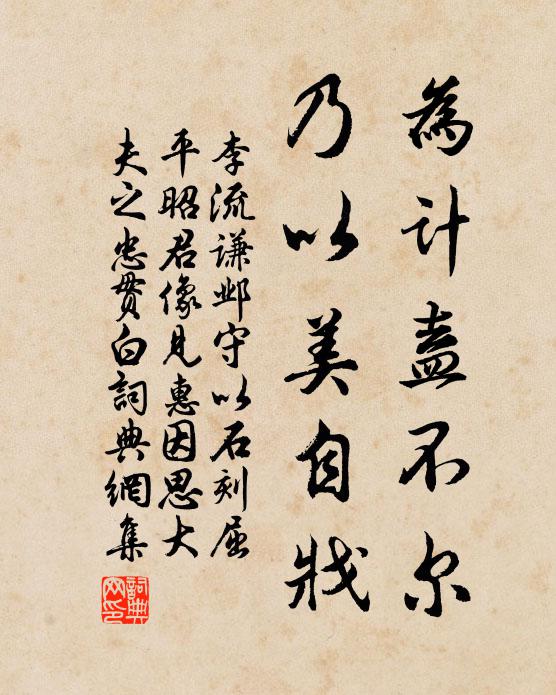 為計盍不尔
乃以美自戕
李流謙邺守以石刻屈
平昭君像見惠因思大
夫之忠貫白詞典網集
詞典
网印